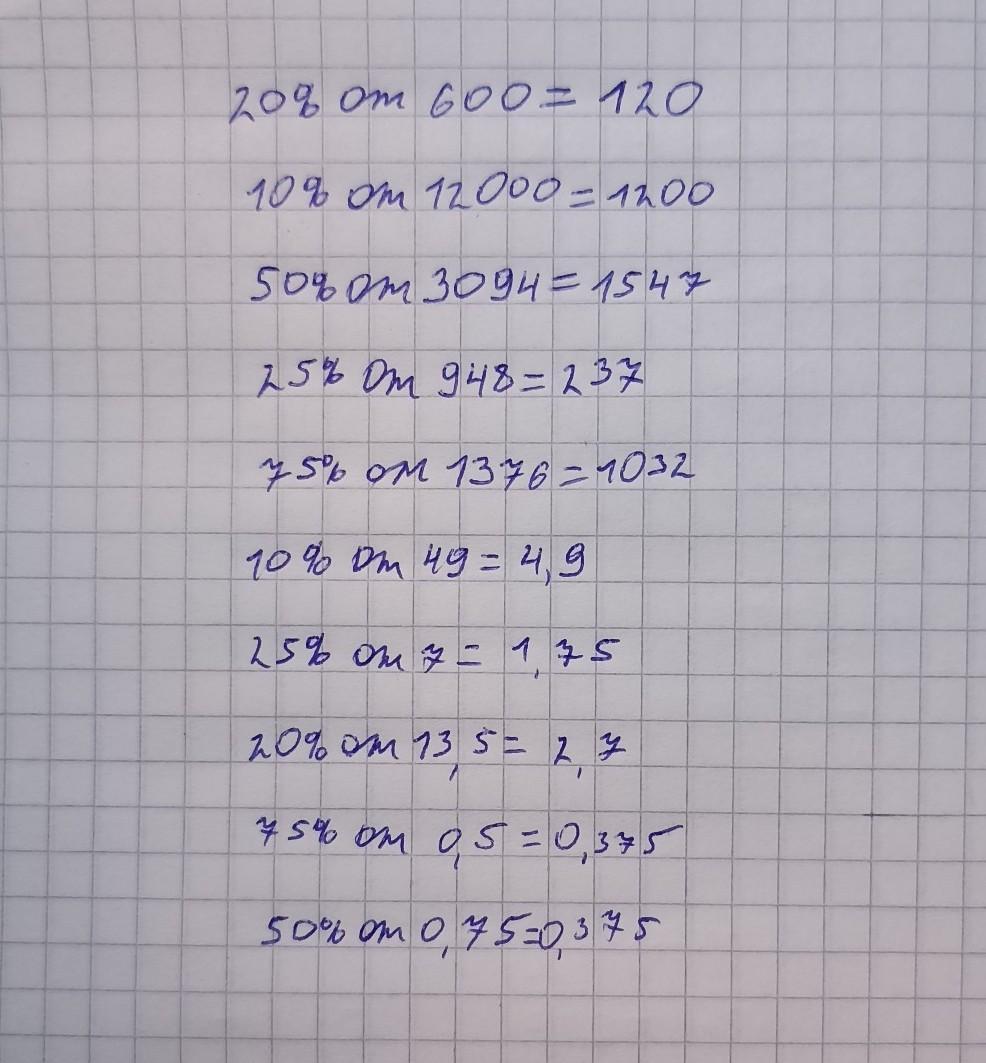 20% от 600 = 120
10% от 12000 = 1200
50% от 3094 = 1547
25% от 948 = 237
75% от 1376 = 1032
10% от 49 = 4,9
25% от 7 = 1,75
20% от 13,5 = 2,7
75% от 0,5 = 0,375
50% от 0,75 = 0,375